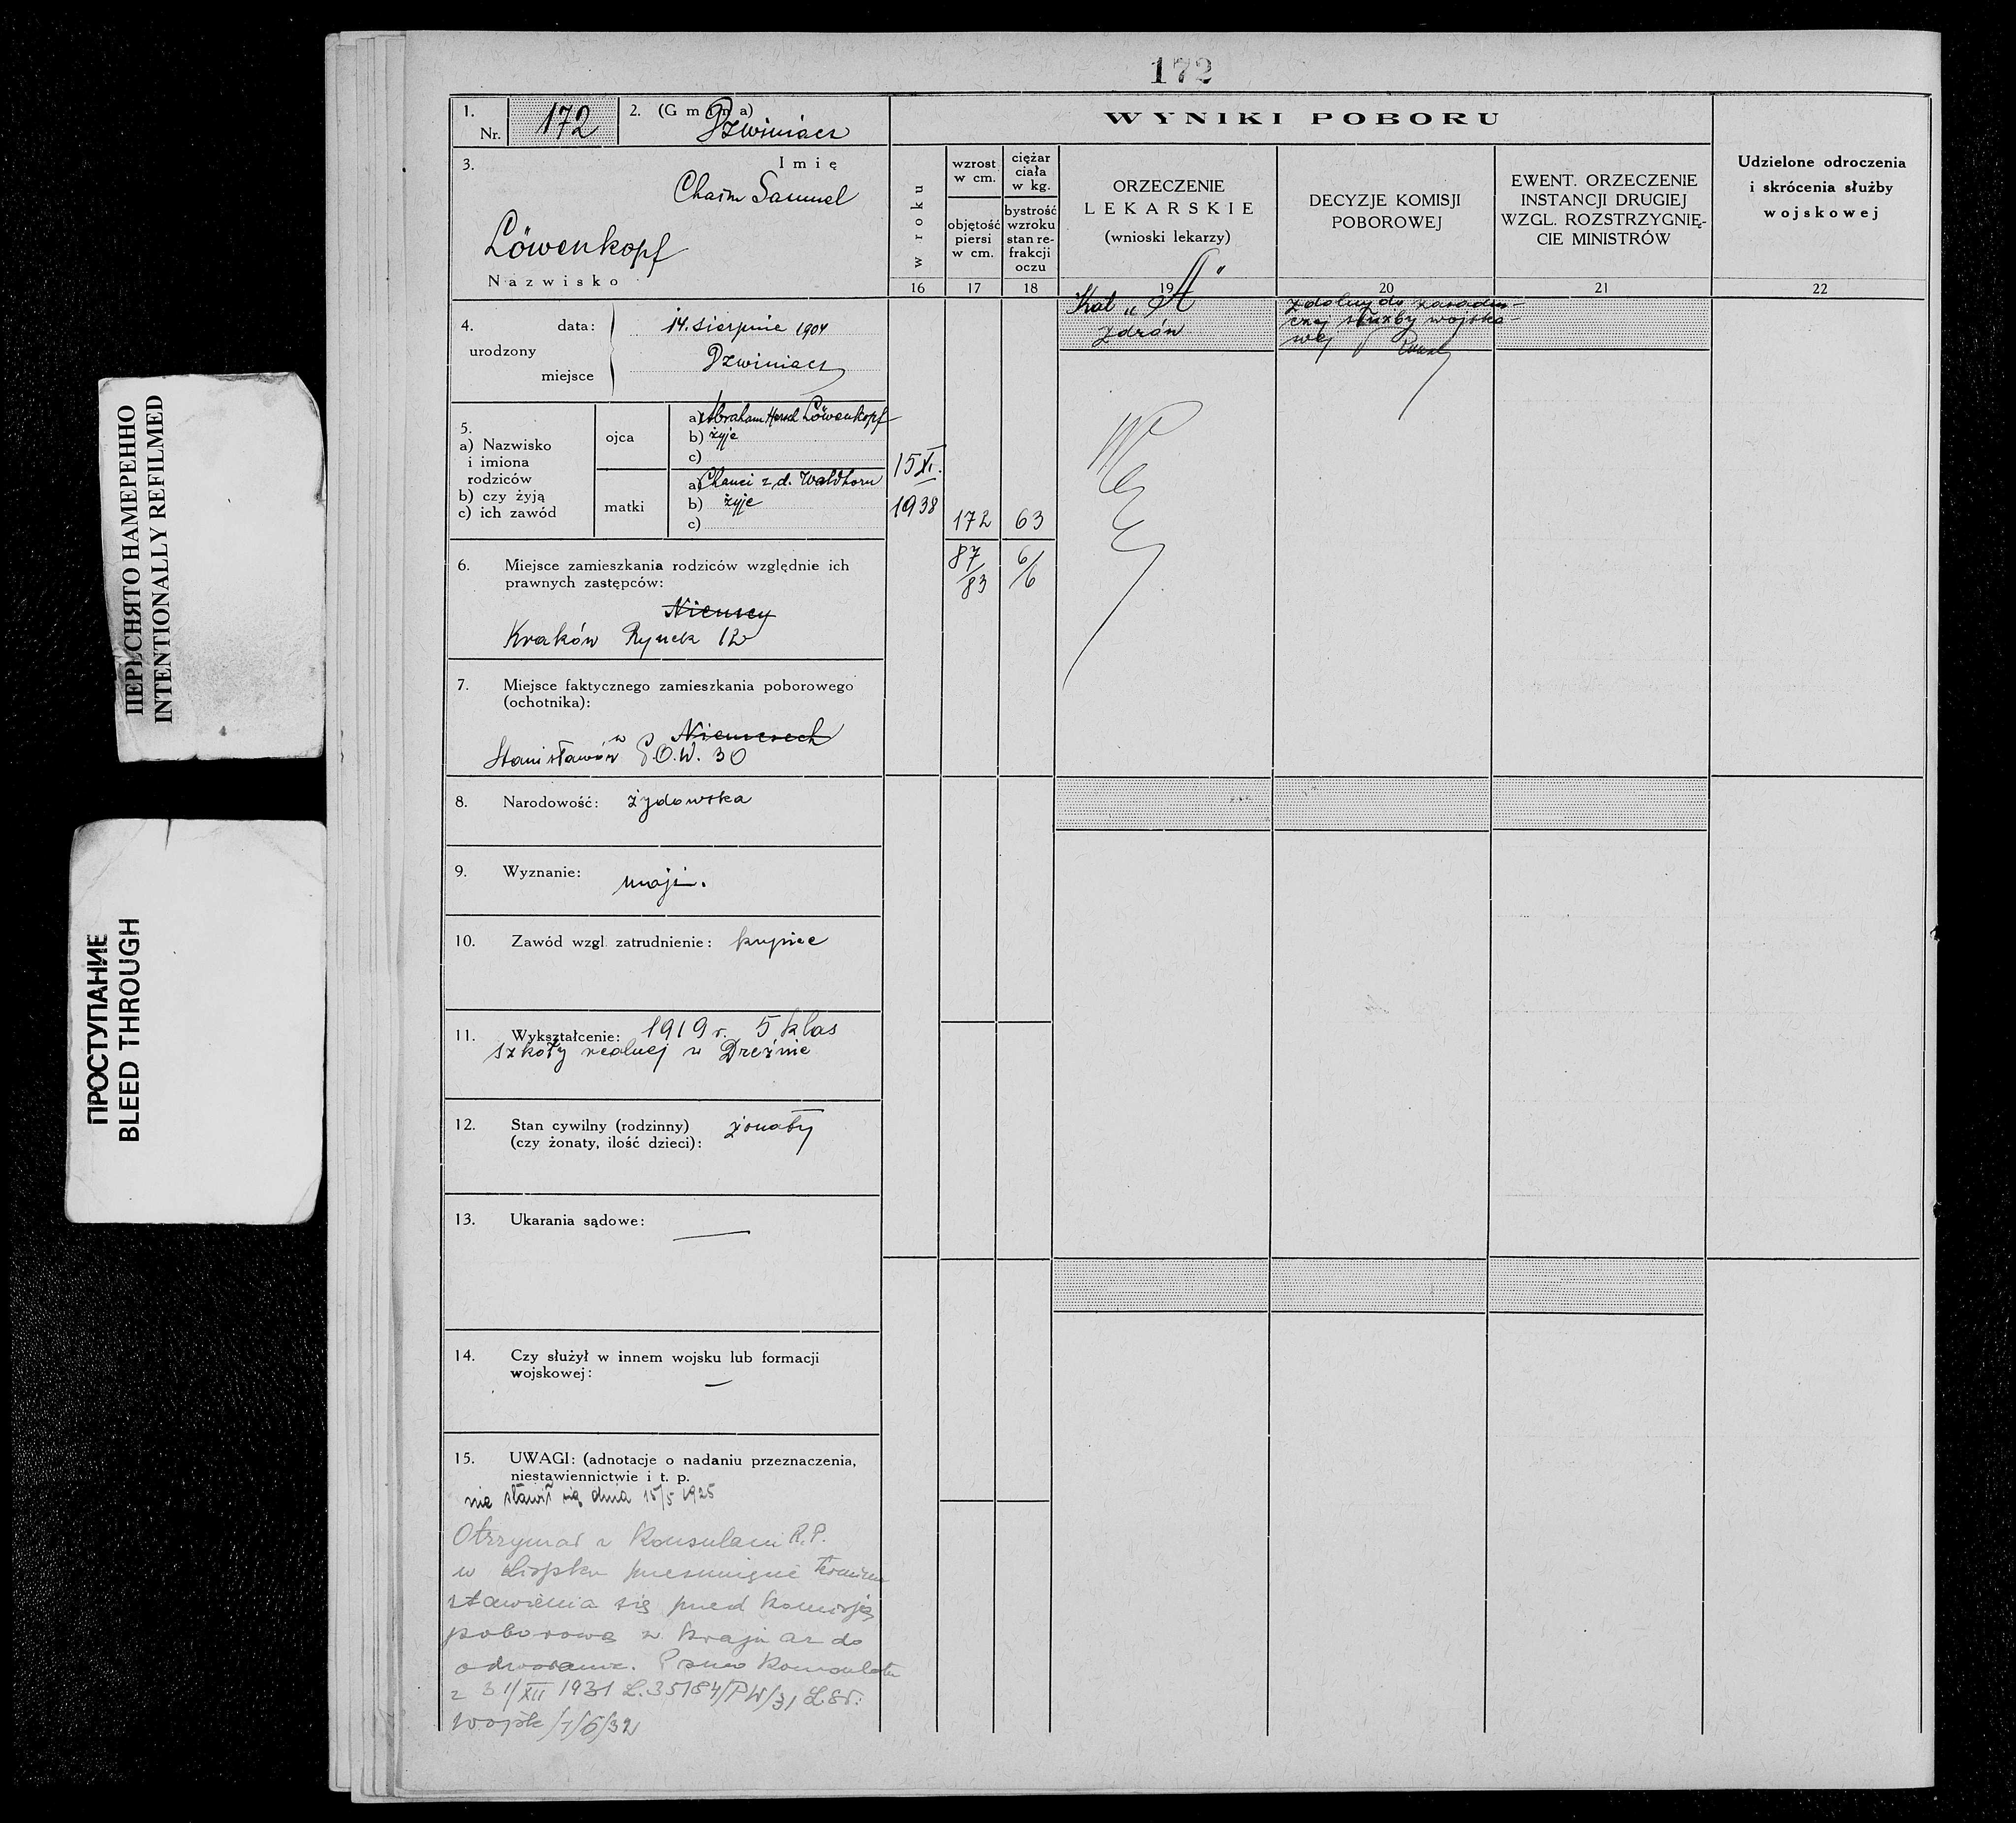 172
1.
Nr. 172
2. (Gmina)
Dzwiniacz
WYNIKI POBORU
Udzielone odroczenia
i skrócenia służby
wojskowej
3.
Imię
Chaim Samuel
Löwenkopf
Nazwisko
w roku
wzrost
w cm.
objętość
piersi
w cm.
ciężar
ciała
w kg.
bystrość
wzroku
stan re-
frakcji
oczu
ORZECZENIE
LEKARSKIE
(wnioski lekarzy)
DECYZJE KOMISJI
POBOROWEJ
EWENT. ORZECZENIE
INSTANCJI DRUGIEJ
WZGL. ROZSTRZYGNIĘ-
CIE MINISTRÓW
16 17 18 19 20 21 22
Kat „A"
zdrów
zdolny do zasadni-
czej służby wojsko-
wej
4.
urodzony
data: 14. sierpnia 1904
miejsce Dzwiniacz
5.
a) Nazwisko
i imiona
rodziców
b) czy żyją
c) ich zawód
ojca
a) Abraham Hersch Löwenkopf
b) żyje
c)
matki
a) Chanci z d. Waldhorn
b) żyje
c)
15 XI.
1938
172 63
87/83 6/6
6. Miejsce zamieszkania rodziców względnie ich
prawnych zastępców:
Niemcy
Kraków Rynek 12
7. Miejsce faktycznego zamieszkania poborowego
(ochotnika):
w Niemczech
Stanisławów P.O.W. 30
8. Narodowość: żydowska
9. Wyznanie:
mojż.
10. Zawód wzgl. zatrudnienie: kupiec
11. Wykształcenie: 1919 r. 5 klas
szkoły realnej w Dreźnie
12. Stan cywilny (rodzinny)
(czy żonaty, ilość dzieci): żonaty
13. Ukarania sądowe: —
14. Czy służył w innem wojsku lub formacji
wojskowej: —
15. UWAGI: (adnotacje o nadaniu przeznaczenia,
niestawiennictwie i t. p.
nie stawił się dnia 15/5 1925
Otrzymał z Konsulacie R.P.
w Lipsku przesunięcie terminu
stawienia się przed komisją
poborową w kraju aż do
odwołania. Pismo Konsulatu
z 31/XII 1931 L.35184/PW/31 L.św:
Wojsk/1/6/32
ПЕРЕСНЯТО НАМЕРЕННО
INTENTIONALLY REFILMED
ПРОСТУПАНИЕ
BLEED THROUGH